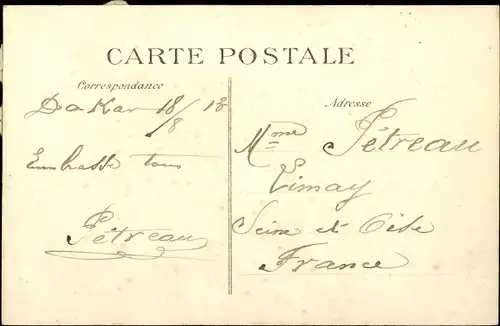 CARTE POSTALE
Correspondance
Dakar 18/8 13
Embrasse tous
Pétreau
Adresse
Mme Pétreau
Limay
Seine et Oise
France